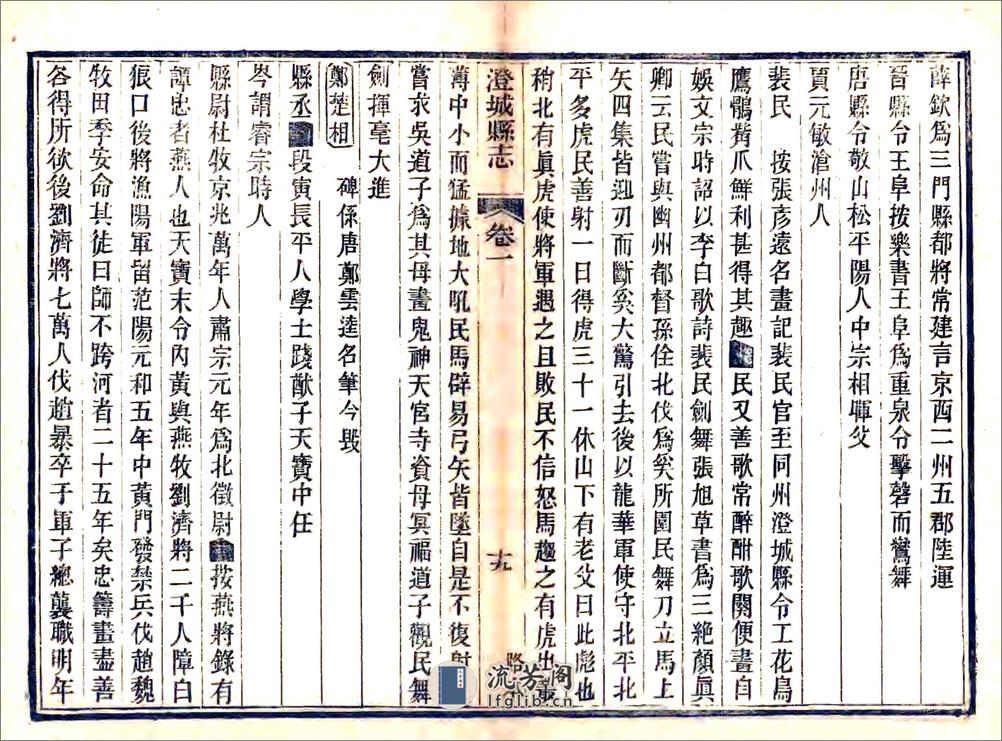 薛欽爲三門縣都將常建言京西二州五郡陸運
晉縣令王阜按樂書王阜爲重泉令擊磬而鸞舞
唐縣令敬山松平陽人中宗相暉父
賈元敏滄州人
裴民　按張彥遠名畫記裴民官至同州澄城縣令工花鳥
鷹鶻觜爪鮮利甚得其趣民又善歌常醉酣歌闋便畫自
娛文宗時詔以李白歌詩裴民劍舞張旭草書爲三絶顏眞
卿云民嘗與幽州都督孫佺北伐爲奚所圍民舞刀立馬上
矢四集皆迎刃而斷奚大驚引去後以龍華軍使守北平北
平多虎民善射一日得虎三十一休山下有老父曰此彪也
稍北有眞虎使將軍遇之且敗民不信怒馬趨之有虎出叢
澄城縣志
卷一
十九
薄中小而猛據地大吼民馬辟易弓矢皆墜自是不復射
嘗求吳道子爲其母畫鬼神天宮寺資母冥福道子觀民舞
劍揮毫大進
鄭楚相　碑係唐鄭雲逵名筆今毀
縣丞　段寅長平人學士踐猷子天寶中任
岑謂睿宗時人
縣尉杜牧京兆萬年人肅宗元年爲北徵尉按燕將錄有
譚忠者燕人也天寶末令內黃與燕牧劉濟將二千人障白
狼口後將漁陽軍留范陽元和五年中黃門發禁兵伐趙魏
牧田季安命其徒曰師不跨河者二十五年矣忠籌畫盡善
各得所欲後劉濟將七萬人伐趙暴卒于軍子總襲職明年
流芳閣
lfglib.cn